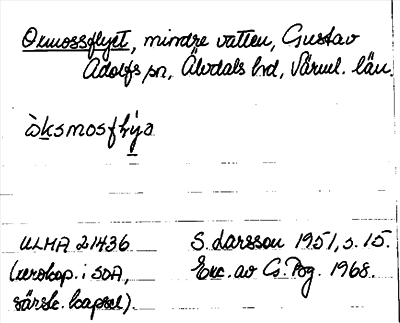 Oxmossflyet, mindre vatten, Gustav
Adolfs sn, Älvdals hd, Värml. län.
òksmosflýa
ULMA 21436
S. Larsson 1951, s. 15.
(xerokop. i SOA,
Exc. av Cs. Pog. 1968.
särsk. kapsel).